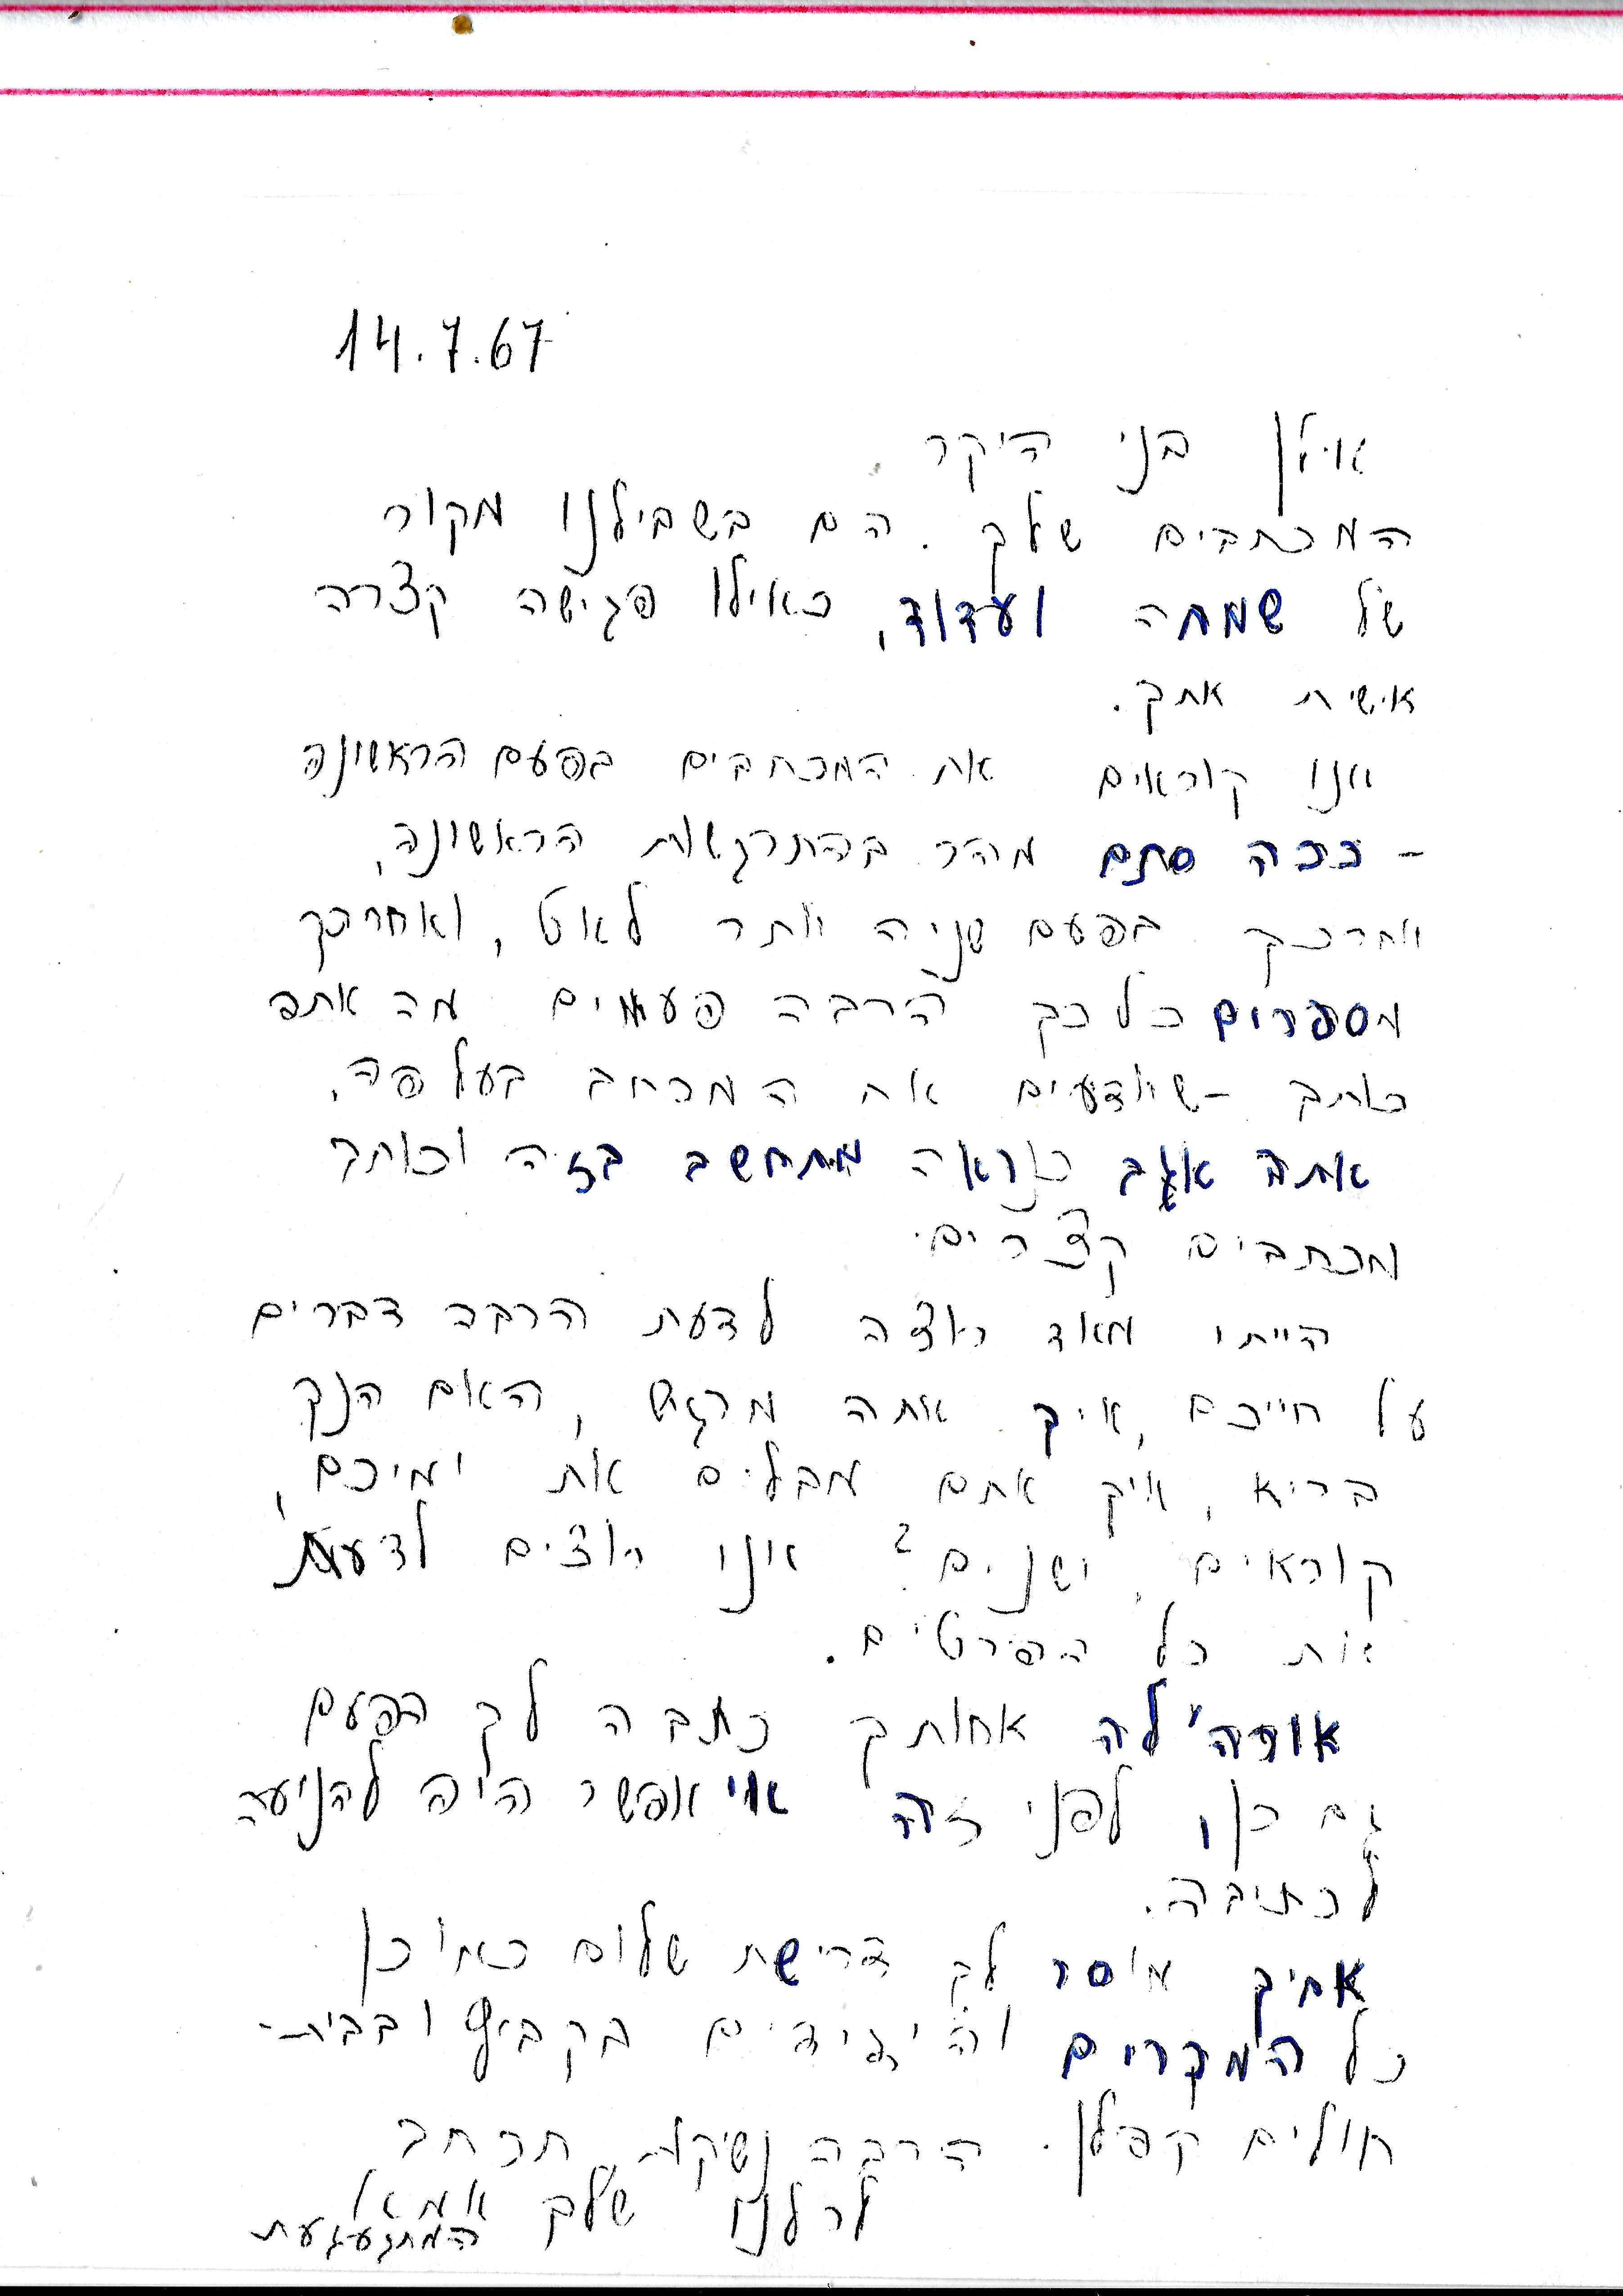 14.7.67
אילן בני היקר
המכתבים שלך. הם בשבילנו מקור
של שמחה ועדוד, כאילו פגישה קצרה
אישית אתך.
אנו קוראים את המכתבים בפעם הראשונה
- ככה סתם מהר בהתרגשות הראשונה,
אחרכך בפעם שניה יותר לאט, ואחרכך
מספרים כל כך הרבה פעמים מה אתה
כותב - שיודעים את המכתב בעל פה.
אתה אגב כנראה מתחשב בזה וכותב
מכתבים קצרים.
הייתי מאד רוצה לדעת הרבה דברים
על חייכם, איך אתה מרגיש, האם הנך
בריא, איך אתם מבלים את ימיכם,
קוראים, ישנים? אנו רוצים לדעת
את כל הפרטים.
אורה'לה אחותך כתבה לך הפעם
גם כן, לפני זה אי אפשר היה להניעה
לכתיבה.
אחיך מוסר לך דרישת שלום כמו כן
כל המכרים והידידים בקבוץ ובבית-
חולים קפלן. הרבה נשיקות תכתב
לכולנו שלך אמא
המתגעגעת